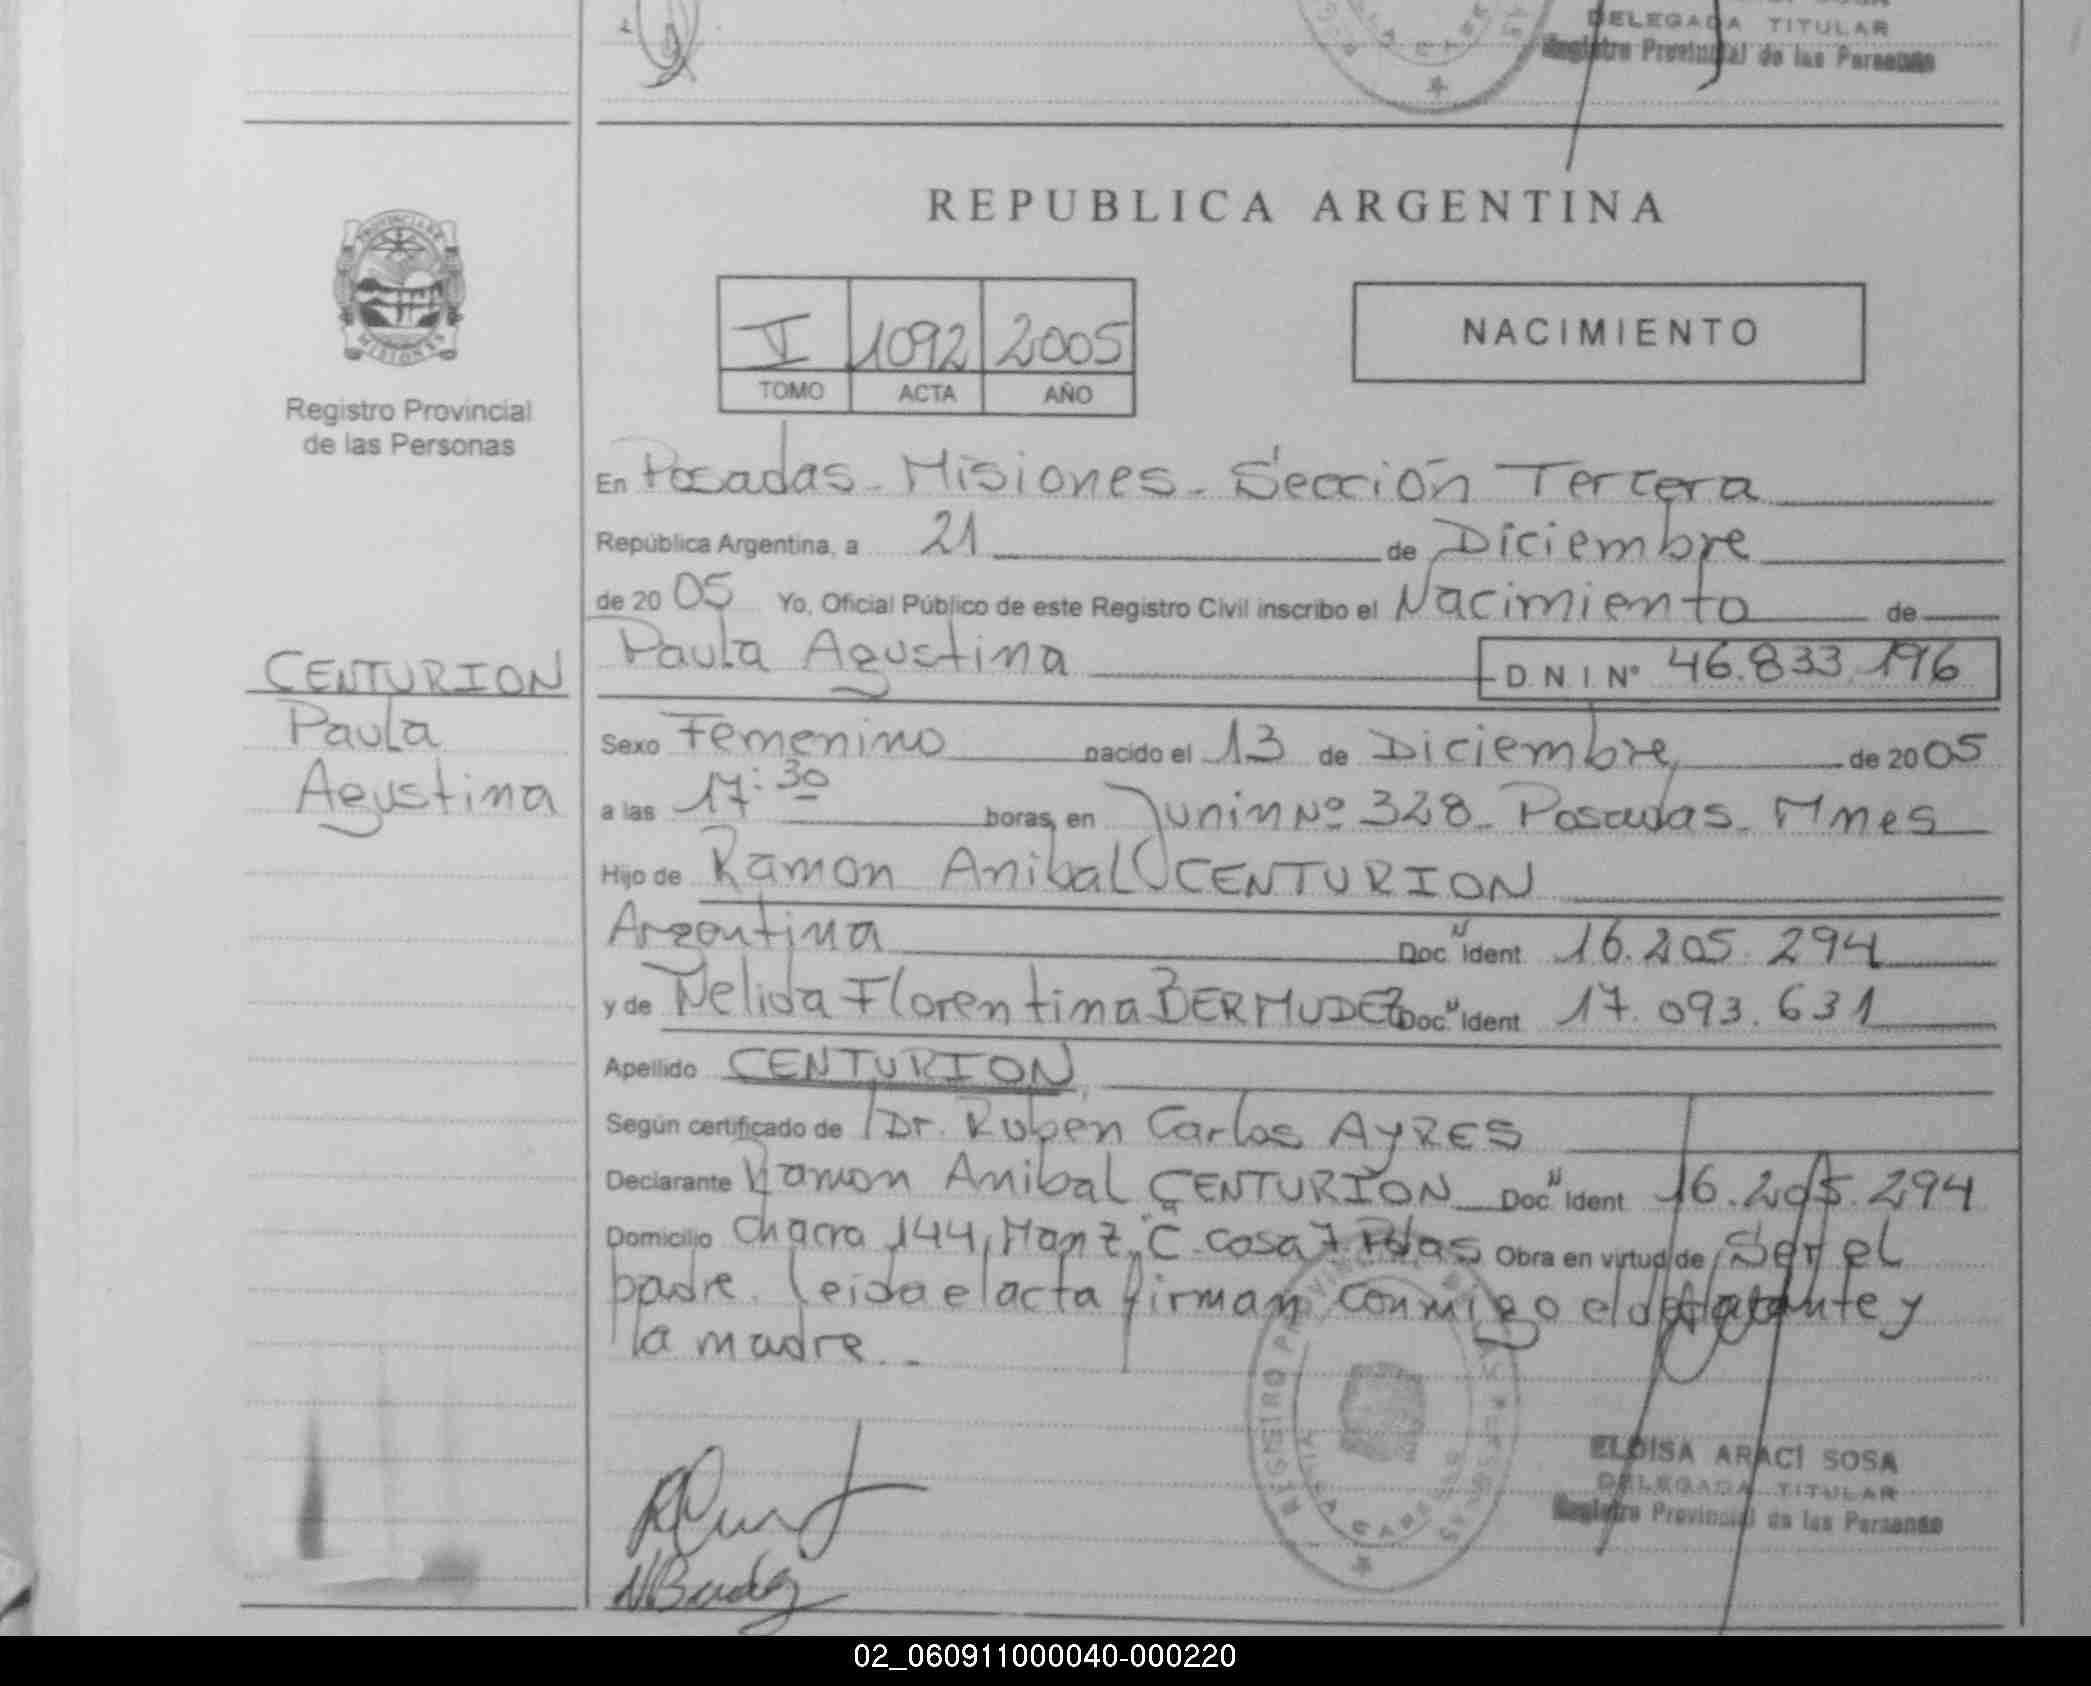 DELEGADA TITULAR
Registro Provincial de las Personas
REPUBLICA ARGENTINA
PROVINCIA DE
MISIONES
Registro Provincial
de las Personas
V 1092 2005
TOMO ACTA AÑO
NACIMIENTO
En Posadas - Misiones - Sección Tercera
República Argentina, a 21 de Diciembre
de 2005 Yo, Oficial Público de este Registro Civil inscribo el Nacimiento de
CENTURION
Paula
Agustina
Paula Agustina D.N.I. Nº 46.833.196
Sexo Femenino nacido el 13 de Diciembre de 2005
a las 17:30 horas, en Junin Nº 328 - Posadas - Mnes
Hijo de Ramon Anibal CENTURION
Argentina Doc. Ident 16.205.294
y de Nelida Florentina BERMUDEZ Doc. Ident 17.093.631
Apellido CENTURION
Según certificado de Dr. Ruben Carlos AYRES
Declarante Ramon Anibal CENTURION Doc. Ident 16.205.294
Domicilio Chacra 144, Manz "C" casa 7 Pdas Obra en virtud de Ser el
padre. Leida el acta firman conmigo el declarante y
la madre. -
REGISTRO PROVINCIAL DE LAS PERSONAS
ELOISA ARACI SOSA
DELEGADA TITULAR
Registro Provincial de las Personas
02_060911000040-000220